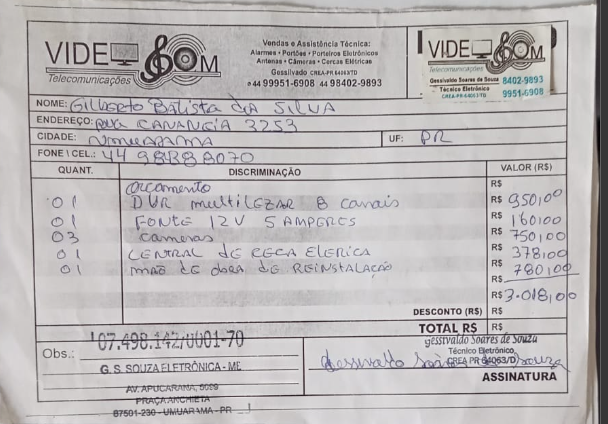 VIDE SOM
Telecomunicações
Vendas e Assistência Técnica:
Alarmes • Portões • Porteiros Eletrônicos
Antenas • Câmeras • Cercas Elétricas
Gessilvado CREA-PR 64063/TD
44 99951-6908 44 98402-9893
VIDE SOM
Telecomunicações
Gessivaldo Soares de Souza 8402-9893
Técnico Eletrônico 9951-6908
CREA-PR 64063/TD
NOME: Gilberto Batista da SILVA
ENDEREÇO: RUA CANANGIA 3253
CIDADE: UMUARAMA UF: PR
FONE | CEL.: 44 98388070
QUANT. DISCRIMINAÇÃO VALOR (R$)
orçamento R$
01 DVR multilezar 8 canais R$ 950,00
01 FONTE 12V 5 AMPERES R$ 160,00
03 cameras R$ 750,00
01 CENTRAL de CECA ELERICA R$ 378,00
01 mão de obra de REINSTALAÇÃO R$ 780,00
R$ 3.018,00
DESCONTO (R$) R$
TOTAL R$ R$
Obs.:
07.498.142/0001-70
G. S. SOUZA ELETRÔNICA - ME
AV. APUCARANA, 5029
PRAÇA ANCHIETA
87501-230 - UMUARAMA - PR
gessivaldo Soares de Souza
Técnico Eletrônico
CREA PR 64063/D
Gessivaldo Soares de Souza
ASSINATURA